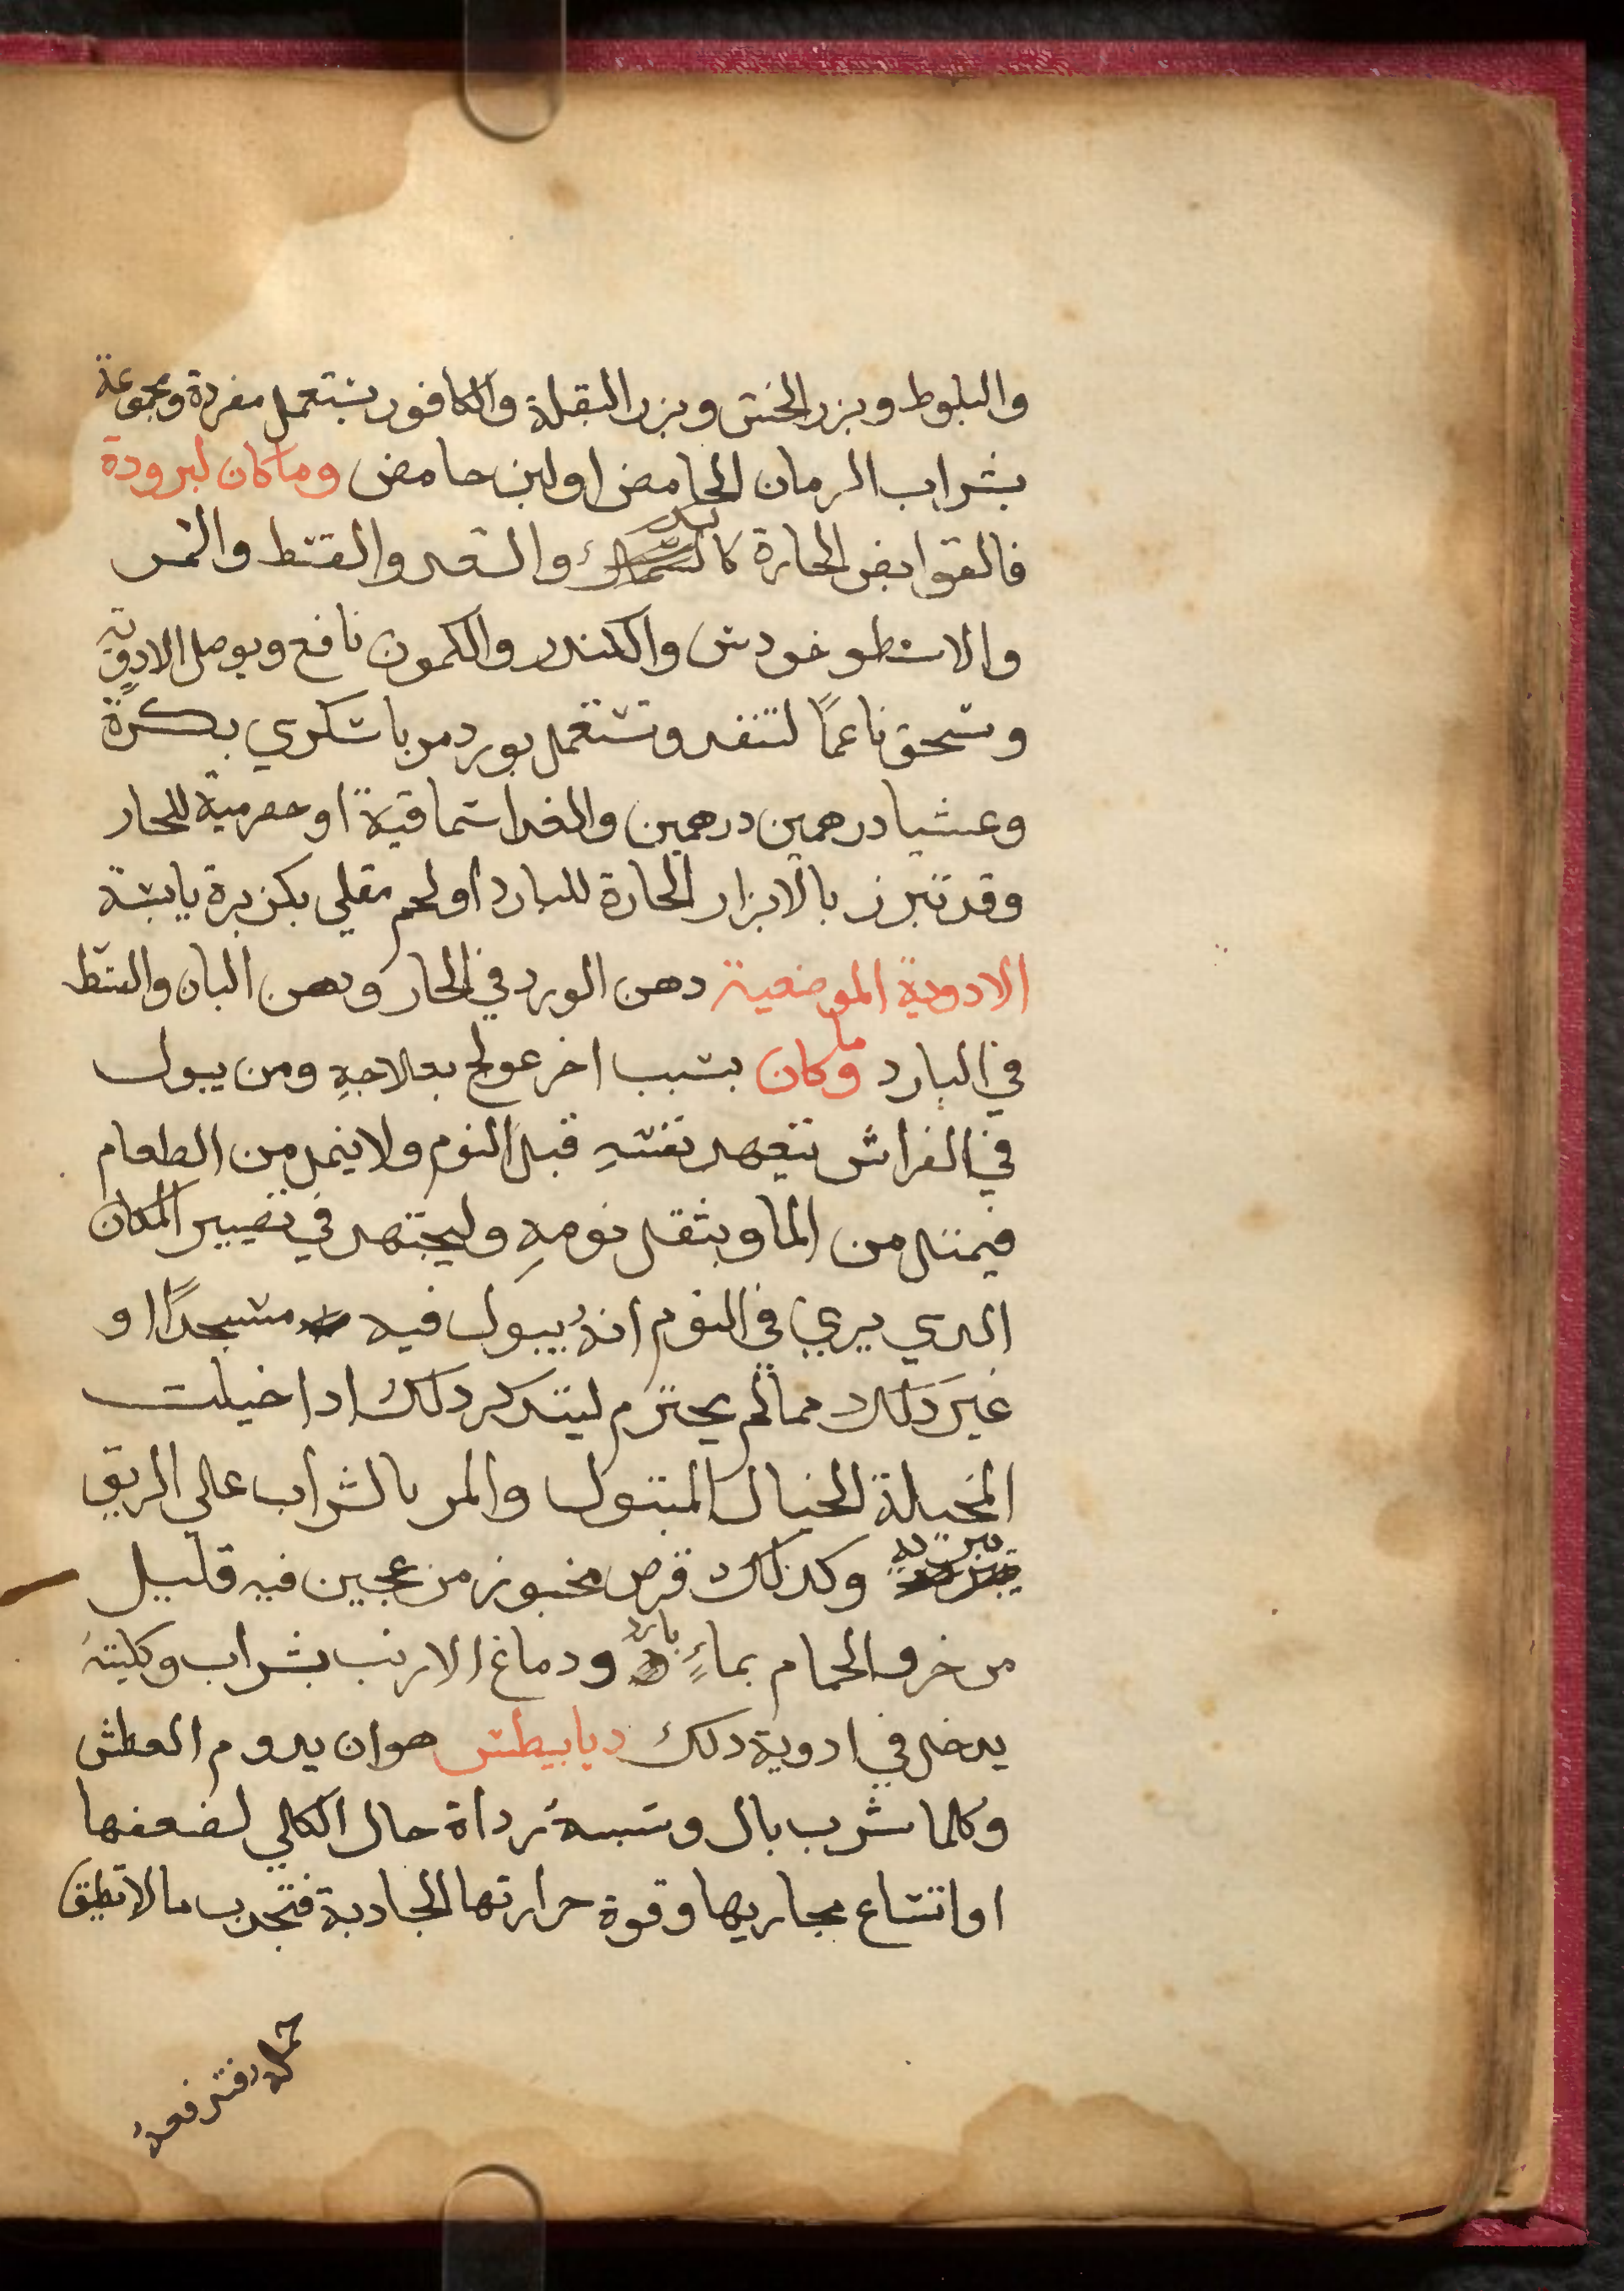 والبلوط وبزر الخس وبزر البقلة والكافور يستعمل مفردة ومجموعة
بشراب الرمان الحامض او لبن حامض وما كان لبرودة
فالقوابض الحارة والسعد والقسط والمر
والاسطوخودس والكندر والكمون نافع ويوصل الادوية
وتسحق ناعمًا لتنفد وتستعمل بورد مربا سكري بكرةً
وعشيا درهمين درهمين والغدا سماقية او حصرمية للحار
وقد تبرز بالابزار الحارة للبارد او لحم مقلي بكزبرة يابسة
الادوية الموضعية دهن الورد في الحار ودهن البان والقسط
في البارد وما كان بسبب اخر عولج بعلاجهِ ومن يبول
في الفراش يتعهد نفسهِ قبل النوم ولا يتمل من الطعام
فيمتل من الما ويثقل نومهِ وليجتهد في تغيير المكان
الدي يري في النوم انهُ يبول فيه مسجدًا او
غيرَ دَلك مما لم يحترم ليتدكر دلك ادا خيلت
المخيلة الخيال المبول والمر بالشراب علي الريق
وكدلك قرص مخبوز من عجين فيه قليل
من خرو الحمام بماءٍ باردٍ ودماغ الارنب بشراب وكليتهُ
يدخل في ادوية دلك ديابيطس هو ان يدوم العطش
وكلما شرب بال وسببهُ رداة حال الكلي لضعفها
او اتساع مجاريها وقوة حرارتها الجادبة فتجدب ما لا تطيق